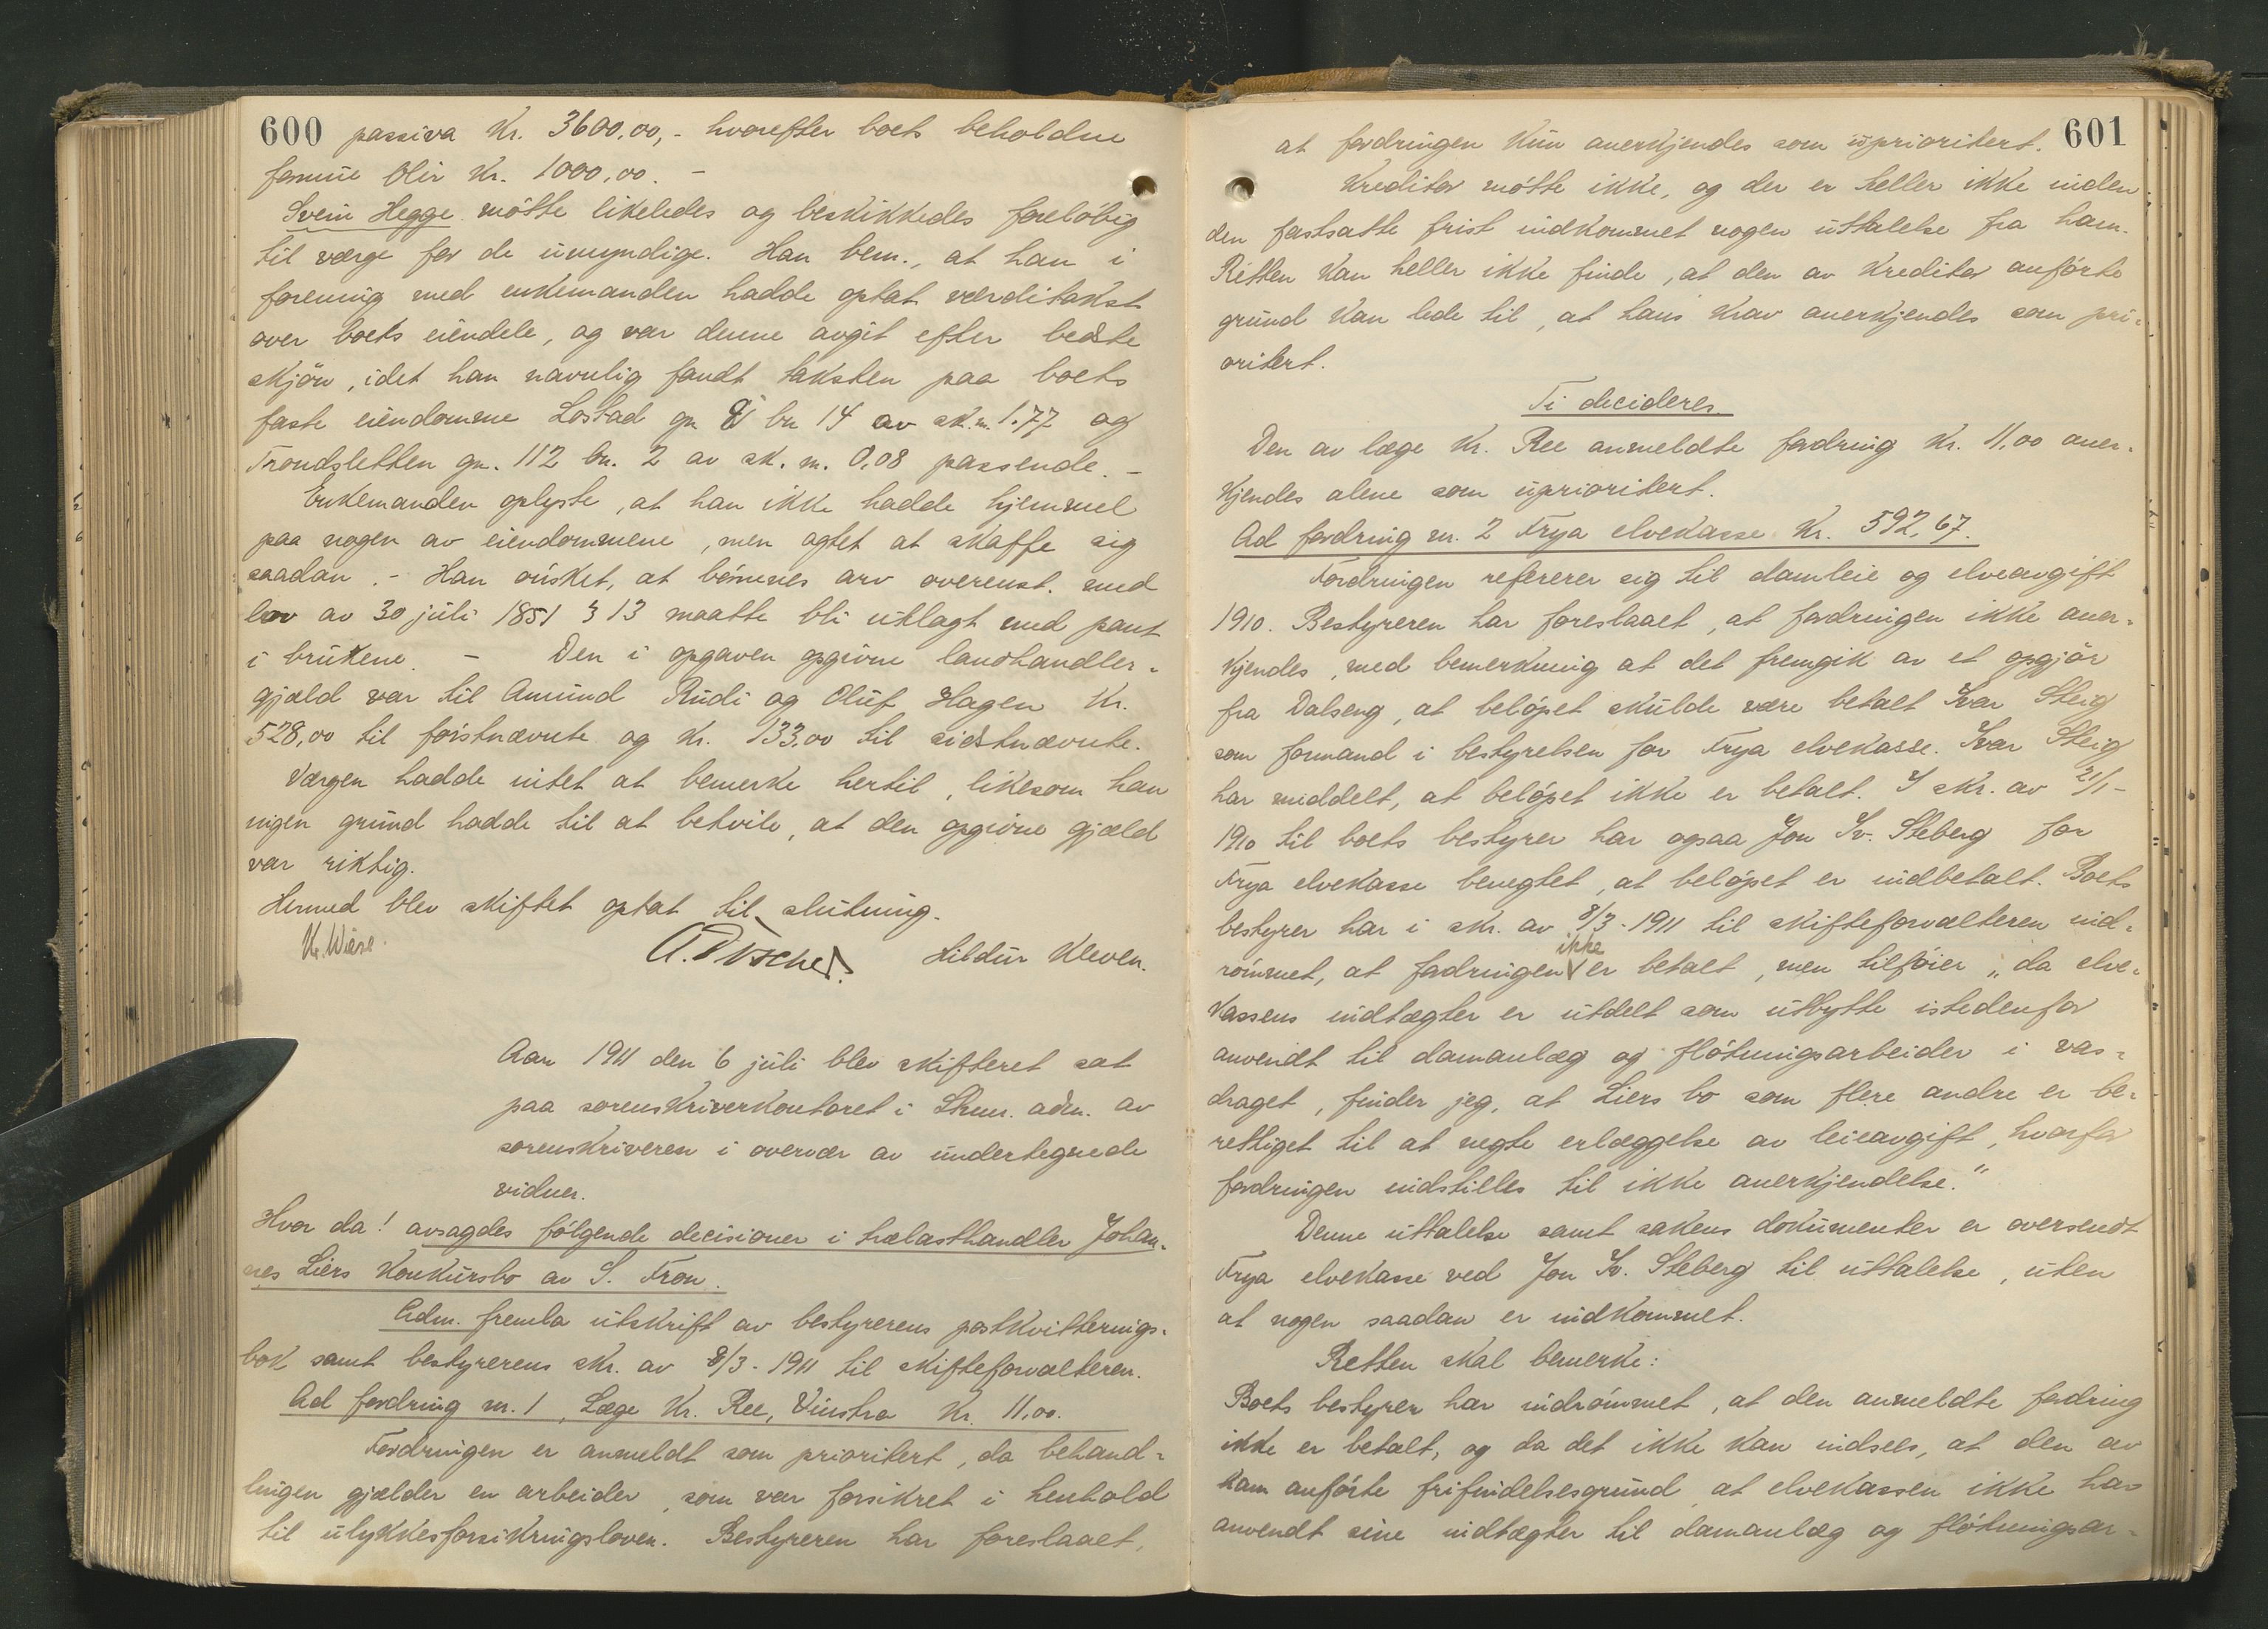 600 passiva Kr. 3600,00,- hvorefter boets beholdne
formue blir Kr. 1000,00. -
Svein Hegge møtte likeledes og beskikkedes foreløbig
til verge for de umyndige. Han bem., at han i
forening med enkemanden hadde optat verditakst
over boets eiendele, og var denne avgit efter bedste
skjøn, idet han navnlig fandt taksten paa boets
faste eiendomme Lostad gn bn 14 av sk.m. 1.77 og
Trondsletten gn. 112 bn. 2 av sk. m. 0,08 passende. -
Enkemanden oplyste, at han ikke hadde hjemmel
paa nogen av eiendommene, men agtet at skaffe sig
saadan. - Han ønsket, at børnenes arv overenst. med
lov av 30 juli 1851 § 13 maatte bli utlagt med pant
i brukene. - Den i opgaven opgivne landhandler-
gjæld var til Amund Rudi og Oluf Hagen Kr.
528,00 til førstnævnte og Kr. 133,00 til sidstnævnte.
Værgen hadde intet at bemerke hertil, likesom han
ingen grund hadde til at betvile, at den opgivne gjæld
var riktig.
Hermed blev skiftet optat til slutning.
Kr. Wiese. A. Fischer. Hildur Kleven.
Aar 1911 den 6 juli blev skifteret sat
paa sorenskriverkontoret i adm. av
sorenskriveren i overvær av undertegnede
vidner.
Hvor da! avsagdes følgende decisioner i trælasthandler Johan-
nes Liers Konkursbo av S. Fron.
Adm. fremla utskrift av bestyrerens postkvitterings-
bok samt bestyrerens skr. av 8/3-1911 til skifteforvalteren.
Ad fordring nr. 1, Læge Kr. Ree, Vinstra Kr. 11,00.
Fordringen er anmeldt som prioritert, da behand-
lingen gjælder en arbeider, som var forsikret i henhold
til ulykkesforsikringsloven. Bestyreren har foreslaaet,
601
at fordringen kun anerkjendes som uprioritert.
Kreditor møtte ikke, og der er heller ikke inden
den fastsatte frist indkommet nogen uttalelse fra ham.
Retten kan heller ikke finde, at den av kreditor anførte
grund kan lede til, at hans krav anerkjendes som pri-
oritert.
Ti decideres.
Den av læge Kr. Ree anmeldte fordring Kr. 11,00 aner-
kjendes alene som uprioritert.
Ad fordring nr. 2 Frya elvekasse Kr. 592,67.
Fordringen refererer sig til damleie og elveavgift
1910. Bestyreren har foreslaaet, at fordringen ikke aner-
kjendes, med bemerkning at det fremgik av et opgjør
fra Dalseng, at beløpet skulde være betalt Ivar Steig
som formand i bestyrelsen for Frya elvekasse. Ivar Steig
har meddelt, at beløpet ikke er betalt. I skr. av 21/1-
1910 til boets bestyrer har ogsaa Jon Iv. Steberg for
Frya elvekasse benegtet, at beløpet er indbetalt. Boets
bestyrer har i skr. av 8/3-1911 til skifteforvalteren ind-
rømmet, at fordringen ikke er betalt, men tilføier „da elve-
kassens indtægter er utdelt som utbytte istedenfor
anvendt til damanlæg og fløtningsarbeider i vas-
draget, finder jeg, at Liers bo som flere andre er be-
rettiget til at negte erlæggelse av leieavgift, hvorfor
fordringen indstilles til ikke anerkjendelse."
Denne uttalelse samt sakens dokumenter er oversendt
Frya elvekasse ved Jon Iv. Steberg til uttalelse, uten
at nogen saadan er indkommet.
Retten skal bemerke:
Boets bestyrer har indrømmet, at den anmeldte fordring
ikke er betalt, og da det ikke kan indsees, at den av
ham anførte frifindelsesgrund, at elvekassen ikke har
anvendt sine indtægter til damanlæg og fløtningsar-